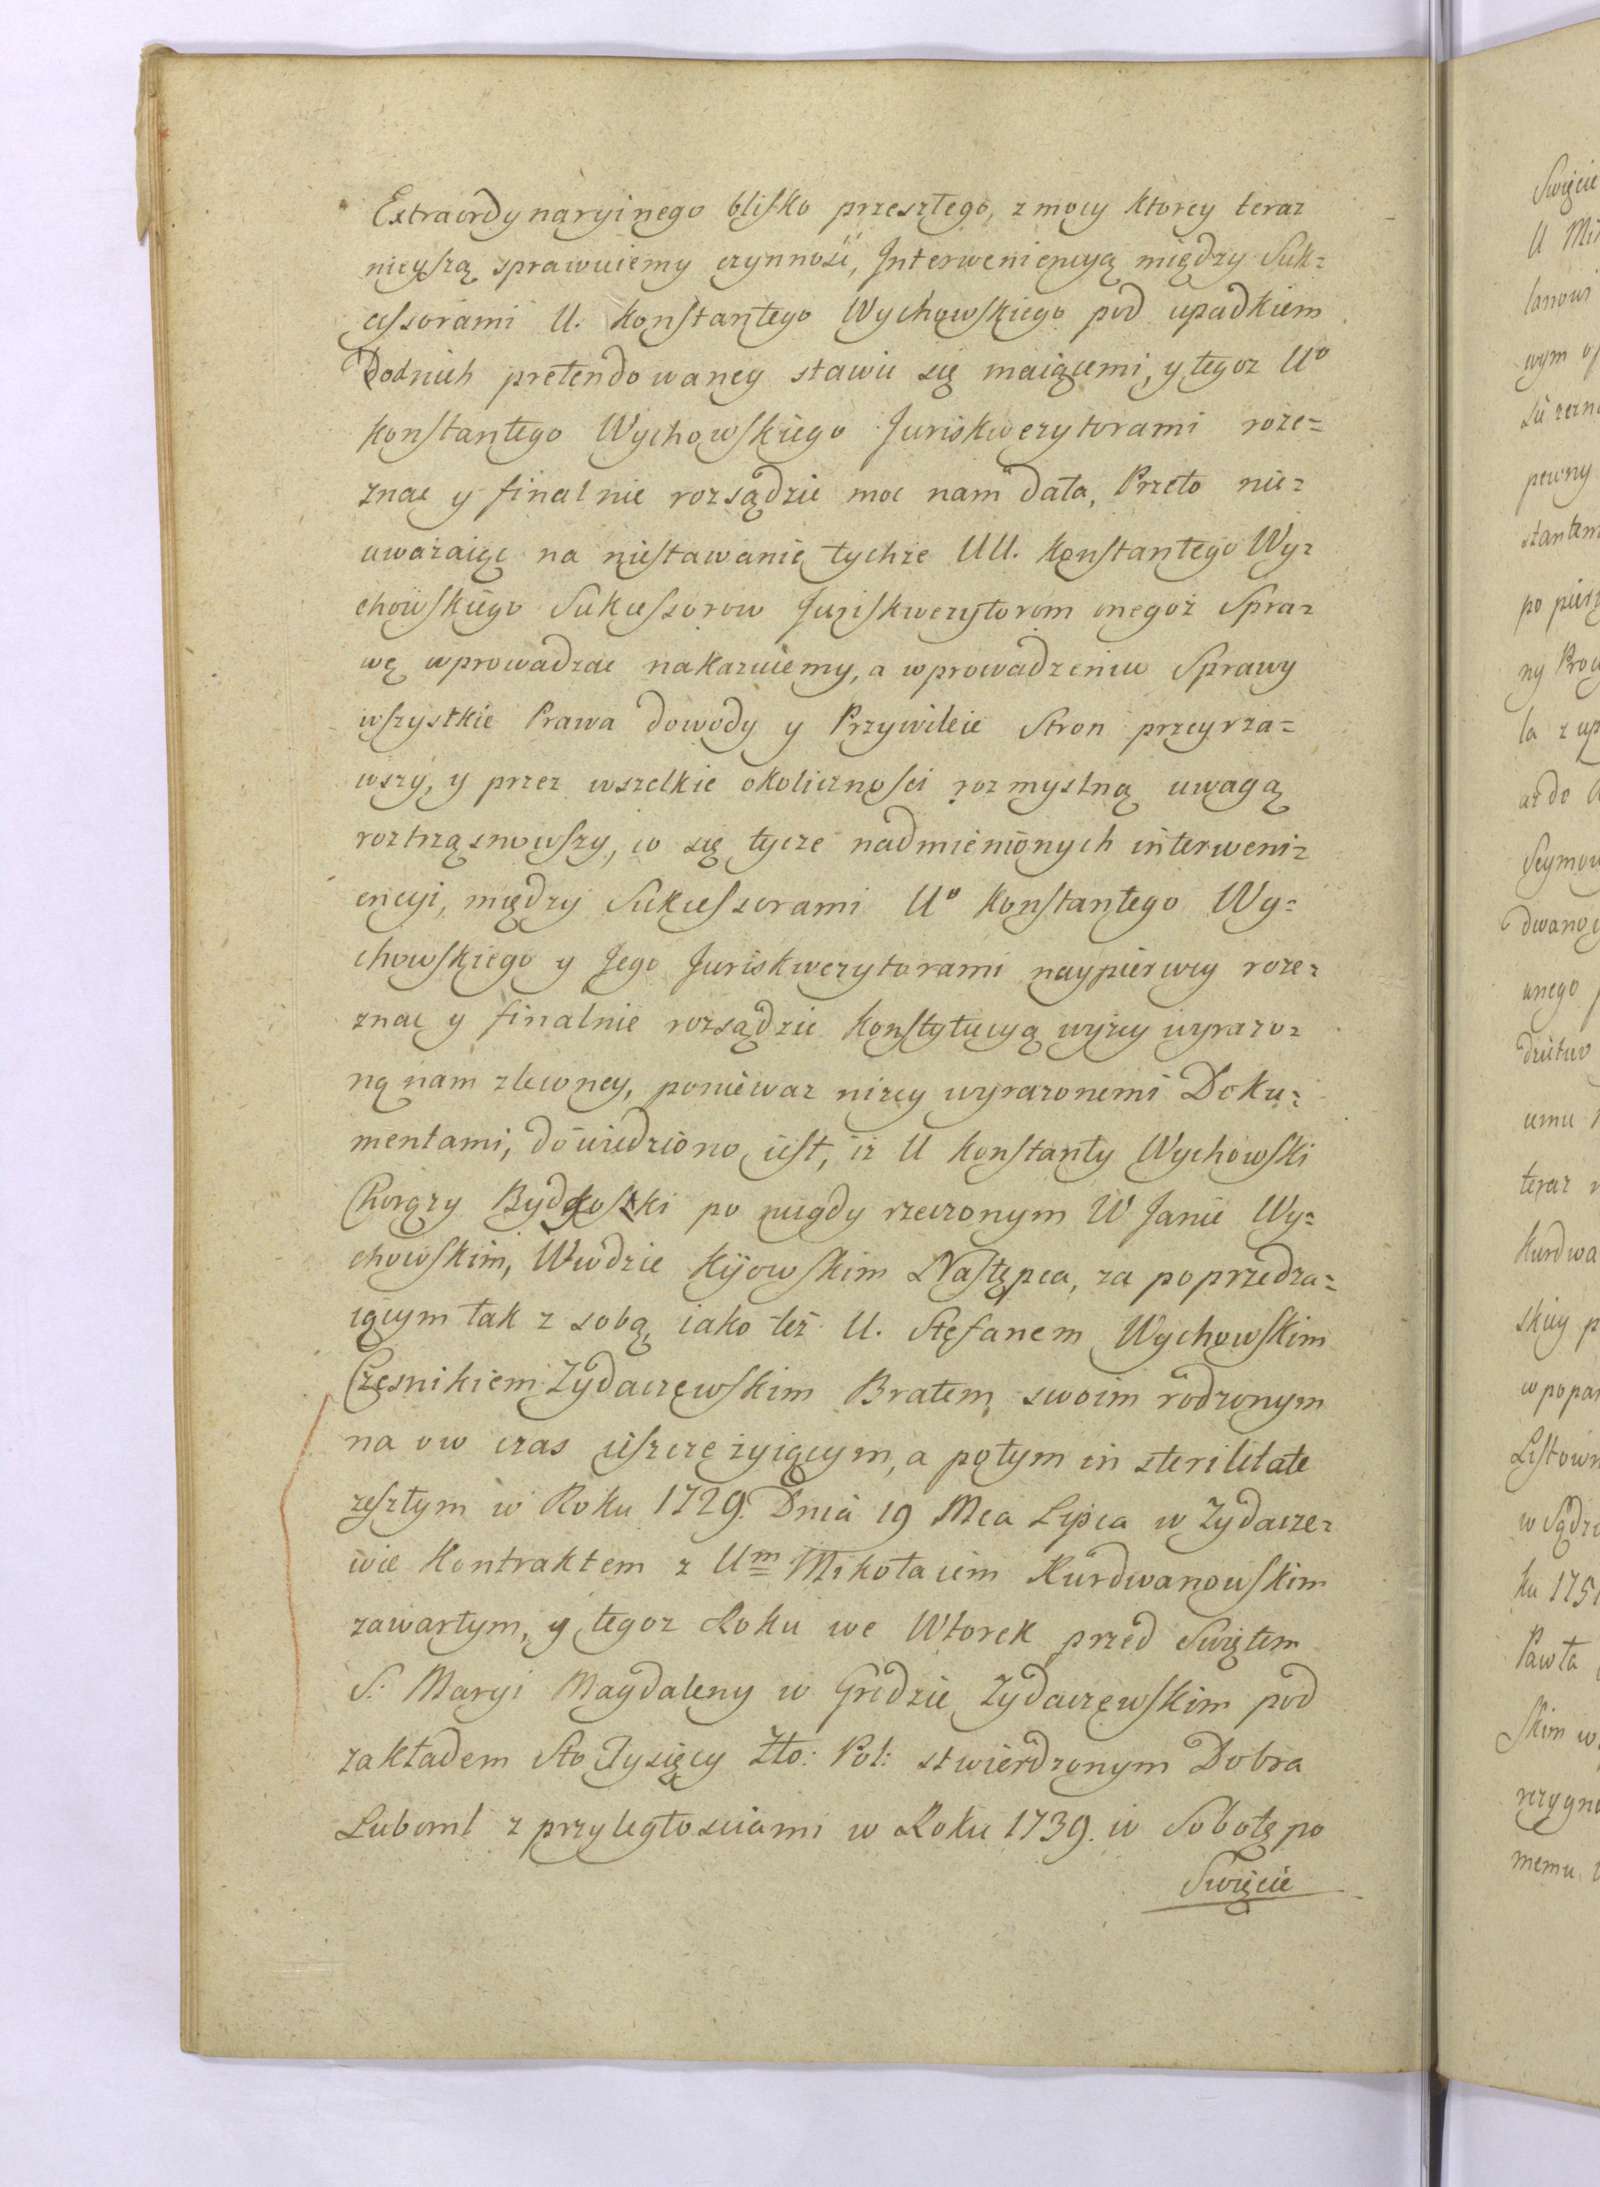 Extraordynaryinego blisko przeszłego, z mocy ktorey teraz
nieyszą sprawuiemy czynność, Interweniencyą między Suk=
cessorami U. Konstantego Wychowskiego pod upadkiem
Podnich pretendowaney stawić się maiącemi, y tegoz U⁰
Konstantego Wychowskiego Juriskwezytorami roze=
znac y finalnie rozsądzić moc nam dała, Przeto nie=
uważaiąc na niestawanie tychze UU. Konstantego Wy=
chowskiego Sukcessorow Juriskwezytorom onegoż Spra=
wę wprowadzac nakazuiemy, a wprowadzeniu Sprawy
wszystkie Prawa dowody y Przywileie Stron przeyrza=
wszy, y przez wszelkie okoliczności rozmyslną uwagą
roztrząsnowszy, co się tycze nadmienionych interweni=
encyi, między Sukcessorami U⁰ Konstantego Wy=
chowskiego y Jego Juriskwezytorami naypierwey roze=
znac y finalnie rozsądzic Konstytucyą wyżey wyrazo=
ną nam zleconey, poniewaz nizey wyrazonemi Doku=
mentami, dowiedziono iest, iz U Konstanty Wychowski
Chorązy Bydgoski po niegdy rzeczonym W Janie Wy=
chowskim, Wwodzie Kijowskim Następca, za poprzedza=
iącym tak z sobą, iako też U. Stefanem Wychowskim
Czesnikiem Zydaczewskim Bratem swoim rodzonym
na ow czas ieszcze żyiącym, a potym in sterilitate
zeszłym w Roku 1729. Dnia 19 Mca Lipca w Zydacze=
wie Kontraktem z Um Mikołaiem Kurdwanowskim
zawartym, y tegoz Roku we Wtorek przed Swiętem
S: Maryi Magdaleny w Grodzie Zydaczewskim pod
zakładem Sto Tysięcy Zło: Pol: stwierdzonym Dobra
Luboml z przyległosciami w Roku 1739. w Sobotę po
Swięcie